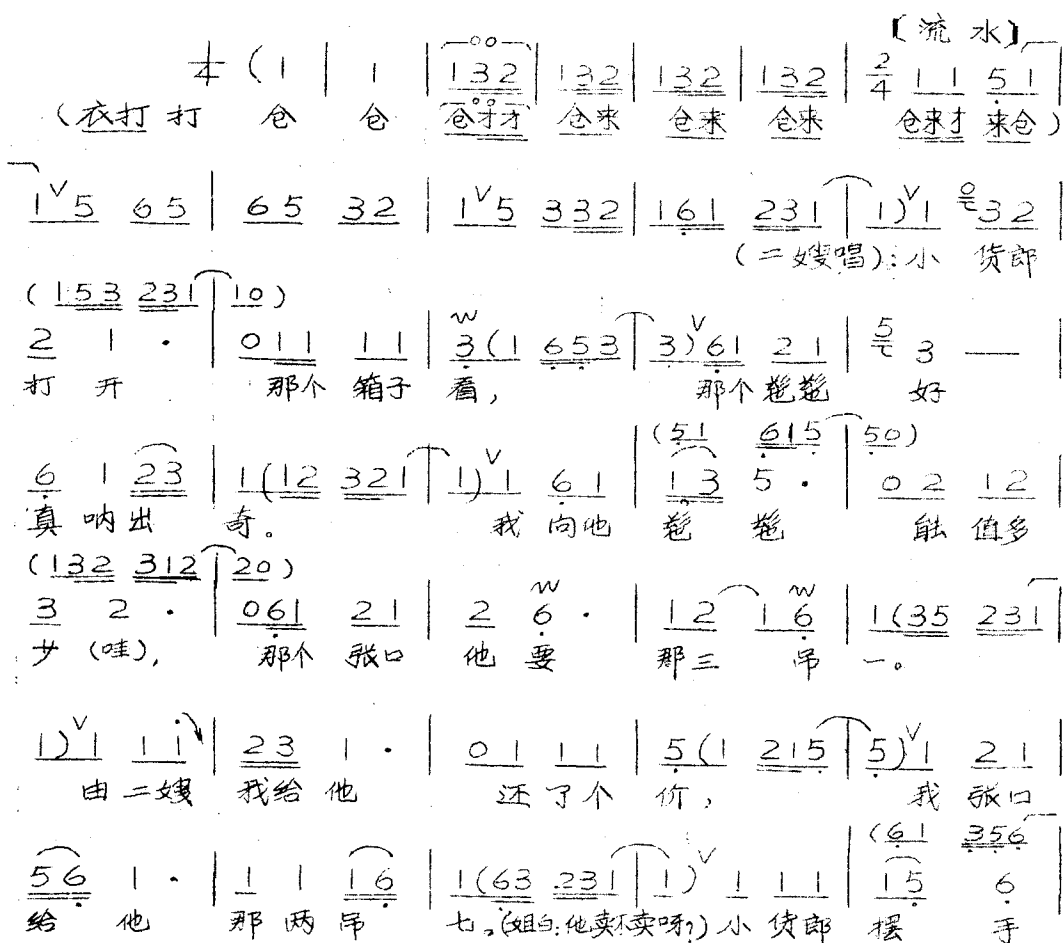 〔流水〕
1/4 (1 | 1 | 132 | 132 | 132 | 132 | 2/4 1 1 5 1 |
(衣打打 仓 仓 仓才才 仓来 仓来 仓来 仓来才 来仓)
1 V 5 65 | 65 32 | 1 V 5 332 | 161 231 | 1) V 1 32 |
(二嫂唱):小 货郎
(153 231 | 10)
2 1 · | 011 11 | 3(1 653 | 3) V 61 21 | 3 — |
打 开 那个 箱子 看, 那个 好
6 1 23 | 1(12 321 | 1) V 1 61 | 13 5 · | 02 12 |
(51 615 | 50)
真 呐 出 奇。 我 向他 能 值多
(132 312 | 20)
3 2 · | 061 21 | 2 6 · | 12 16 | 1(35 231 |
少 (哇), 那个 张口 他 要 那三 吊 一。
1) V 1 11 | 23 1 · | 01 11 | 5(1 215 | 5) V 1 21 |
由 二嫂 我给 他 还 了个 价, 我 张口
(61 356
56 1 · | 1 1 16 | 1(63 231 | 1) V 1 11 | 15 6 |
给 他 那 两 吊 七。(姐白:他卖不卖呀?) 小 货郎 摆 手